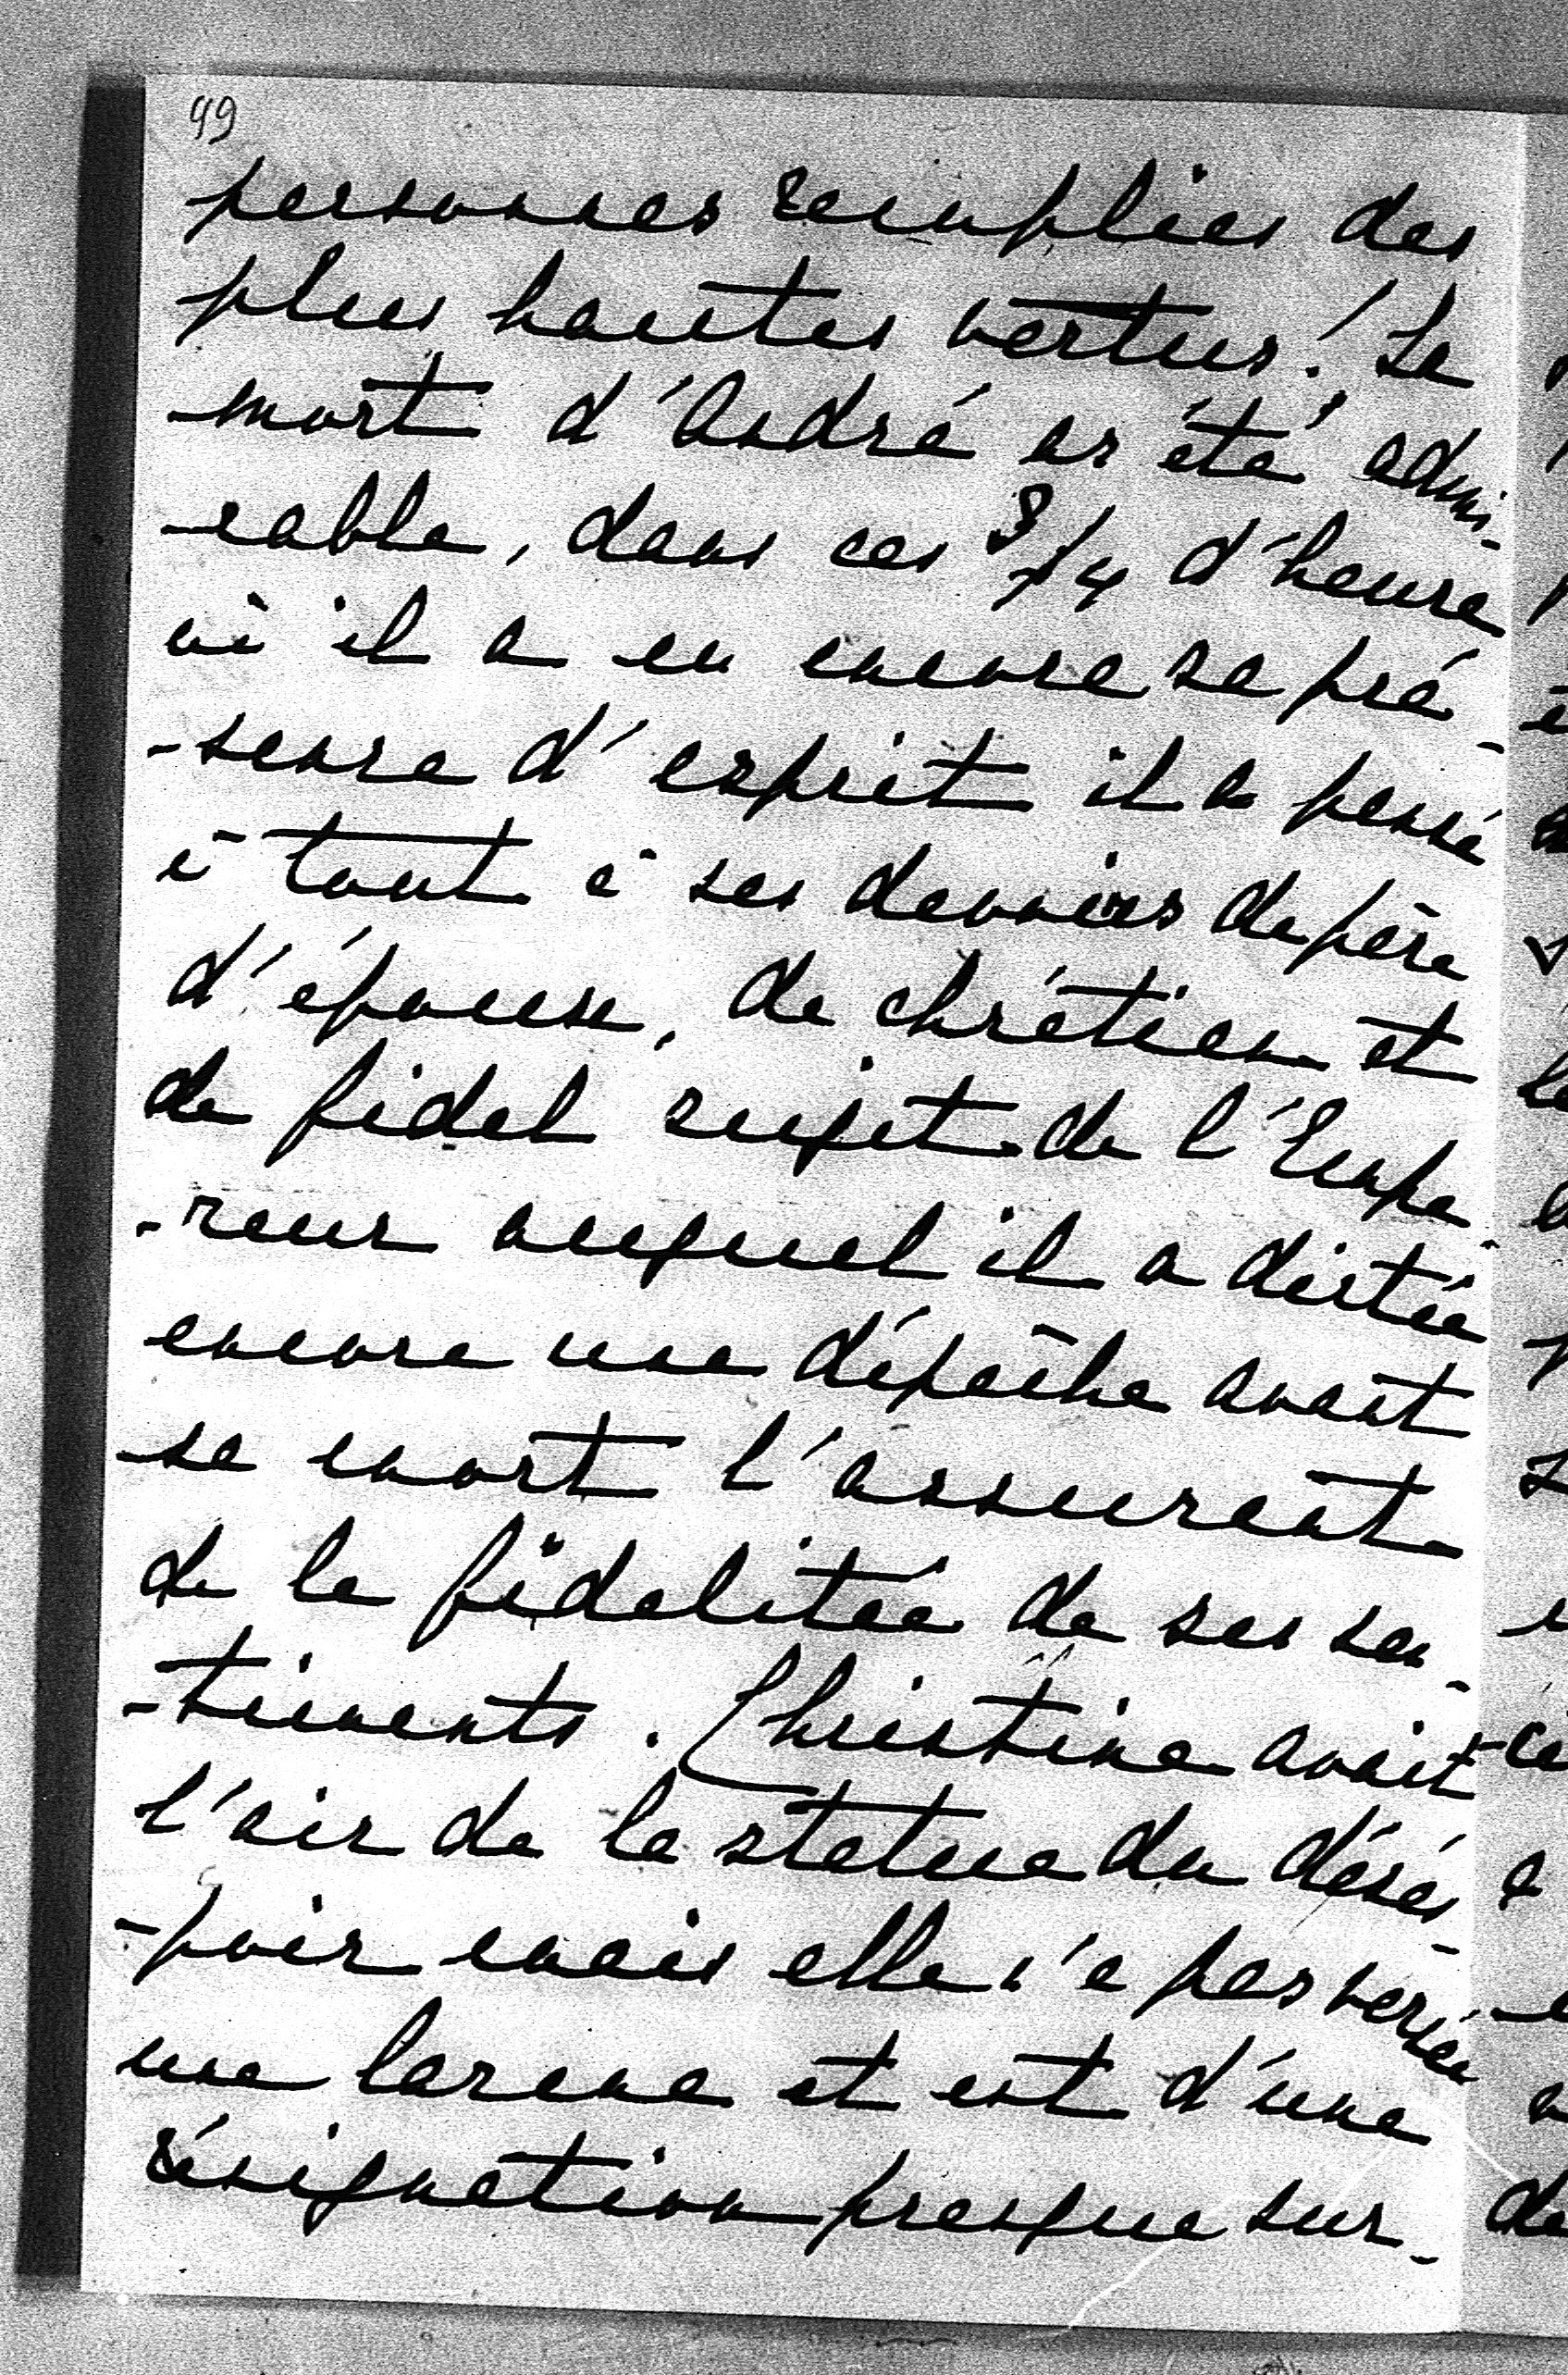 99
personnes remplies des
plus hautes vertus! La
mort d'André as été admi-
rable, dans ces 3/4 d'heure
où il a eu encore sa pré-
-sence d'esprit il a pensé
à tout à ses devoirs de père
d'époux, de chrétien et
de fidel sujet de l'Empe-
-reur auquel il a dictée
encore une dépêche avant
sa mort l'assurant
de la fidelitée de ses sen-
-timents. Christine avait
l'air de la statue du déses-
-poir mais elle n'a pas versée
une larme et est d'une
résignation presque sur-